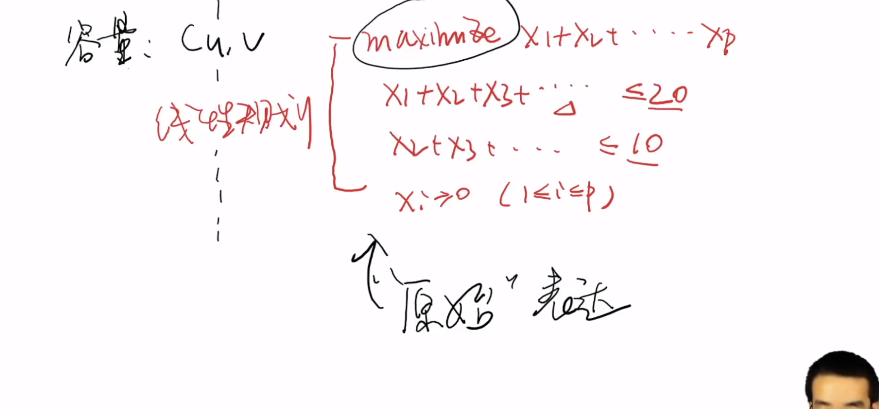 容量: Cu,v
maximize x1+x2+ ····· xp
x1+x2+x3+ ····· ≤20
线性规划
x2+x3+ ···· ≤10
xi≥0 (1≤i≤p)
"原始"表达